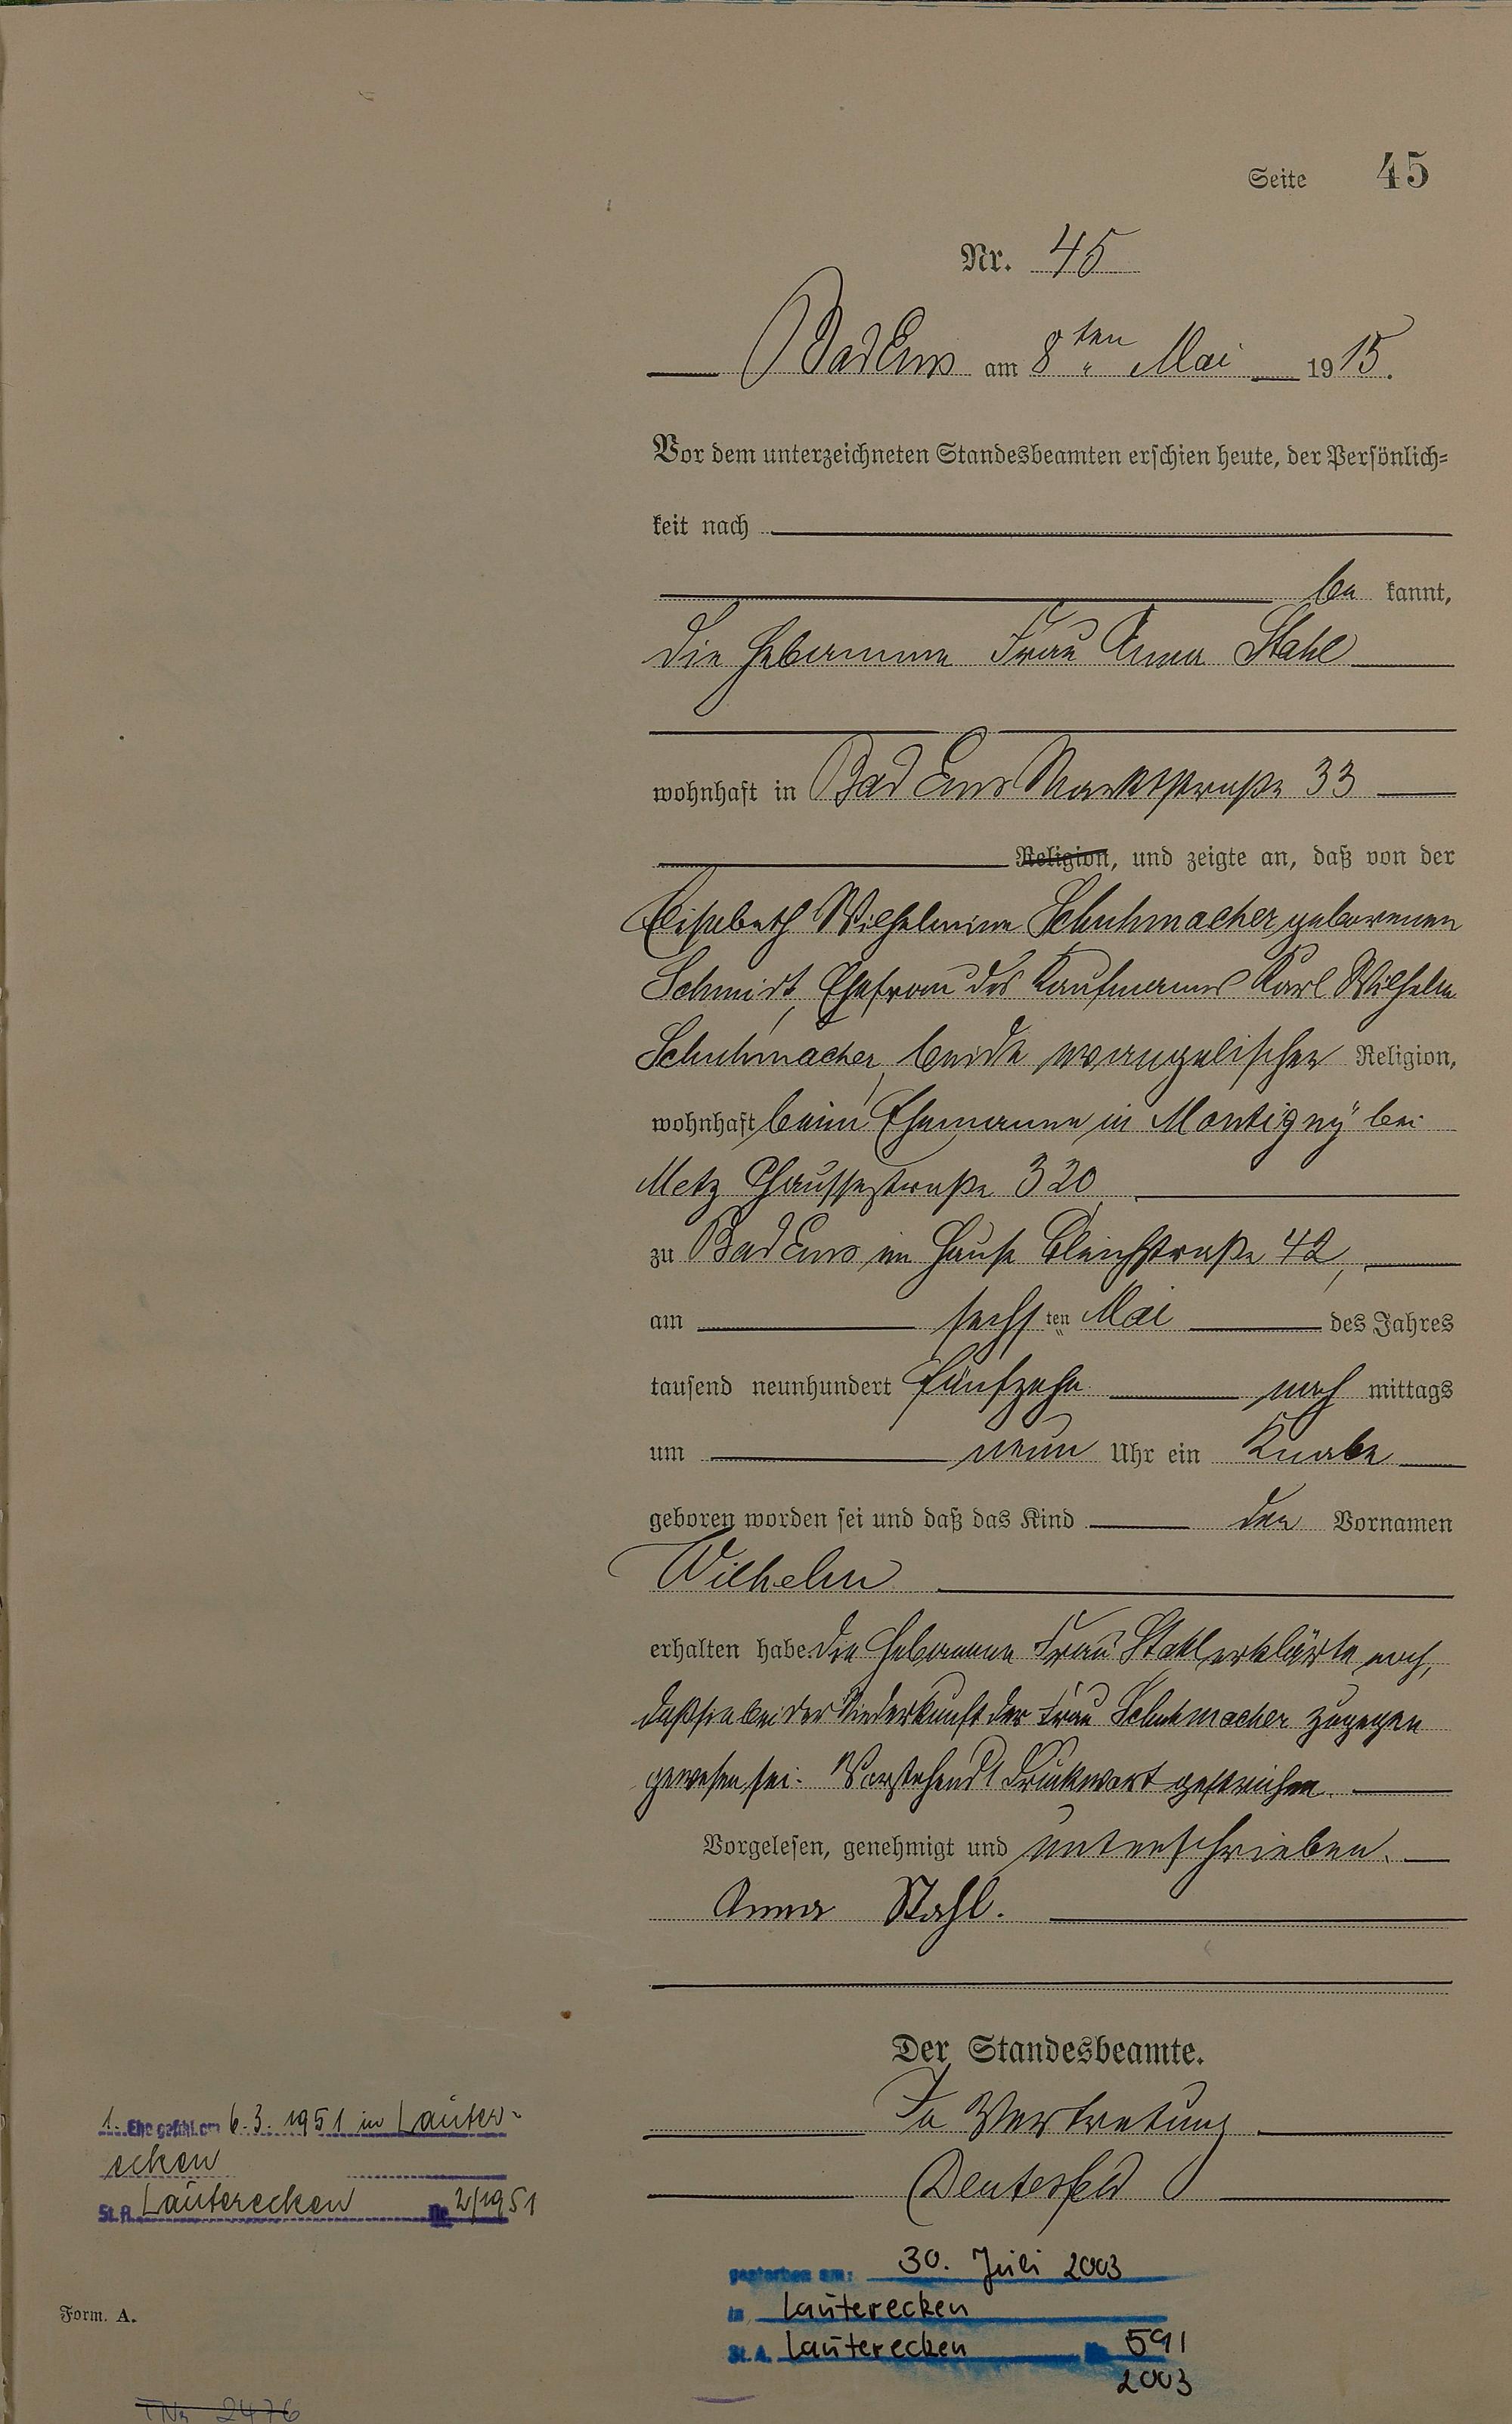 Seite 45
Nr. 45
Bad Ems am 8ten Mai 1915.
Vor dem unterzeichneten Standesbeamten erschien heute, der Persönlich=
keit nach
be kannt,
die Hebamme Frau Anna Stahl
wohnhaft in Bad Ems Marktstraße 33
Religion, und zeigte an, daß von der
Elisabeth Wilhelmine Schuhmacher geborenen
Schmidt, Ehefrau des Kaufmanns Karl Wilhelm
Schuhmacher, beide evangelischer Religion,
wohnhaft beim Ehemanne in Montigny bei
Metz Chausseestraße 320
zu Bad Ems im Hause Bleichstraße 42,
am sechsten Mai des Jahres
tausend neunhundert fünfzehn nach mittags
um neun Uhr ein Knabe
geboren worden sei und daß das Kind den Vornamen
Wilhelm
erhalten habe. Die Hebamme Frau Stahl erklärte noch,
daß sie bei der Niederkunft der Frau Schuhmacher zugegen
gewesen sei. Vorstehend 1 Druckwort gestrichen.
Vorgelesen, genehmigt und unterschrieben.
Anna Stahl.
Der Standesbeamte.
In Vertretung
1. Ehe geschl. am 6.3.1951 in Lauter-
ecken
St.A. Lauterecken Nr. 2/1951
gestorben am: 30. Juli 2003
in Lauterecken
St.A. Lauterecken Nr. 591
2003
Form. A.
2476